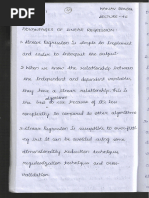 LECTURE-40
Advantages of Linear Regression
→ Linear Regression is simple to implement
and easier to interpret the output
→ When we know the relationship between
the independent and dependent variable,
they have a linear relationship, this is
algorithm
the best to use, because of its less
complexity, as compared to other algorithms
→ Linear Regression is susceptible to over-fitting
but it can be avoided using some
dimensionality reduction techniques,
regularization techniques and cross-
validation.